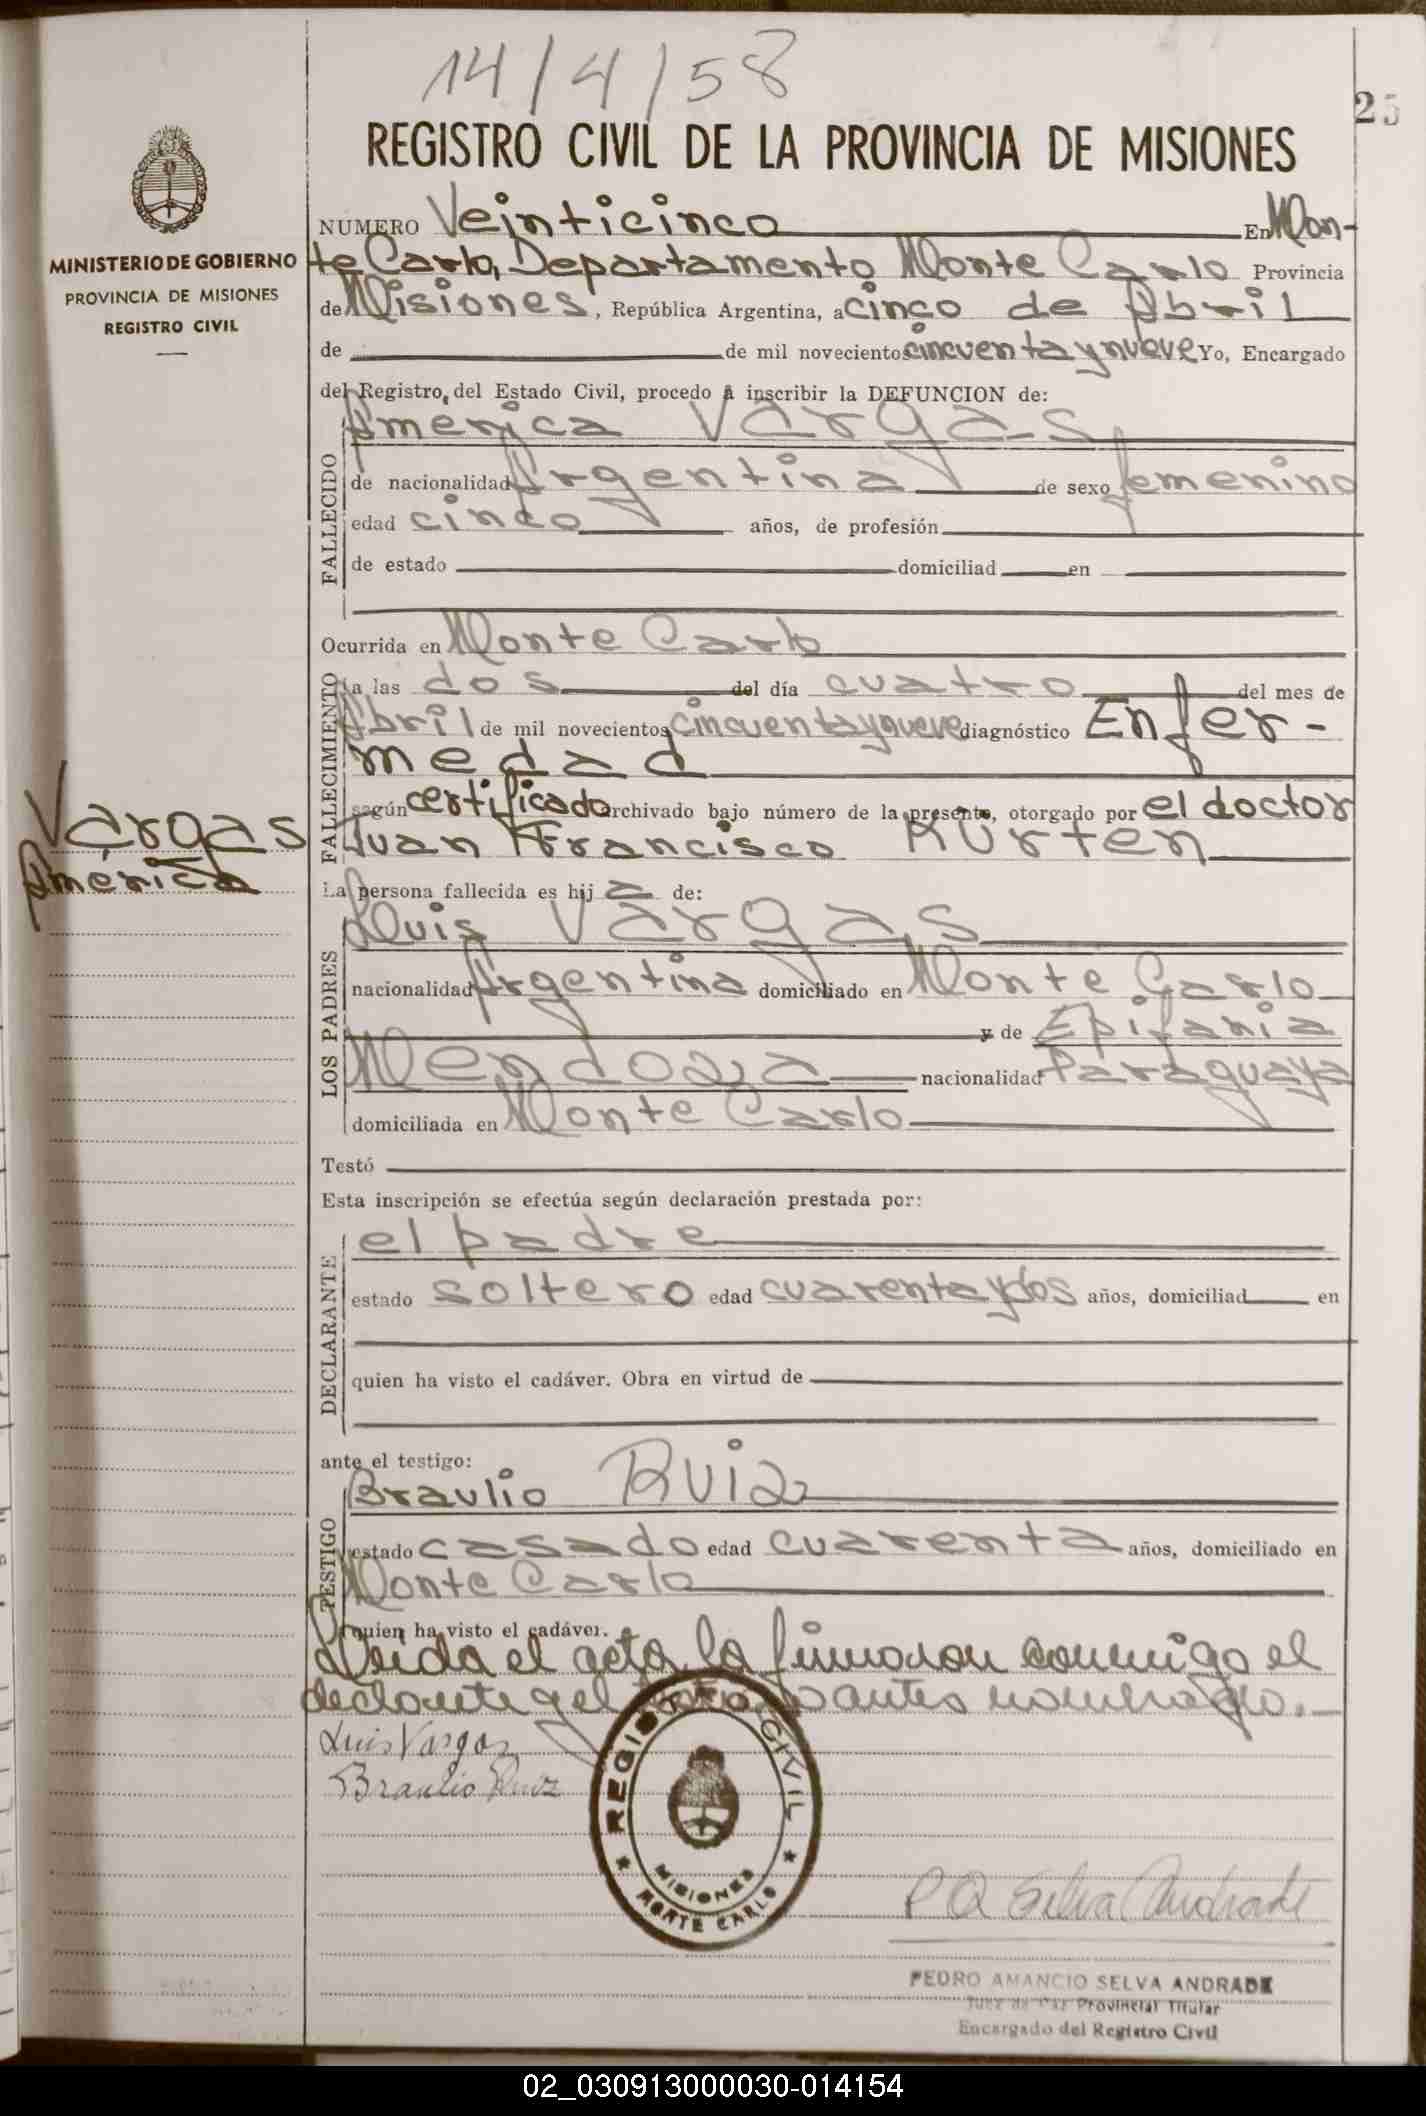 14/4/58
25
REGISTRO CIVIL DE LA PROVINCIA DE MISIONES
MINISTERIO DE GOBIERNO
PROVINCIA DE MISIONES
REGISTRO CIVIL
NUMERO Veinticinco En Mon-
te Carlo, Departamento Monte Carlo Provincia
de Misiones, República Argentina, a cinco de Abril
de de mil novecientos cincuenta y nueve Yo, Encargado
del Registro del Estado Civil, procedo a inscribir la DEFUNCION de:
América Vargas
FALLECIDO
de nacionalidad Argentina de sexo femenino
edad cinco años, de profesión
de estado domiciliad en
Ocurrida en Monte Carlo
FALLECIMIENTO
a las dos del día cuatro del mes de
Abril de mil novecientos cincuenta y nueve diagnóstico Enfer-
medad
según certificado archivado bajo número de la presente, otorgado por el doctor
Juan Francisco Kürten
Vargas
América
La persona fallecida es hij a de:
Luis Vargas
LOS PADRES
nacionalidad Argentina domiciliado en Monte Carlo
y de Epifania
Mendoza nacionalidad Paraguaya
domiciliada en Monte Carlo
Testó
Esta inscripción se efectúa según declaración prestada por:
el padre
DECLARANTE
estado soltero edad cuarenta y dos años, domiciliad en
quien ha visto el cadáver. Obra en virtud de
ante el testigo:
Braulio Ruiz
TESTIGO
estado casado edad cuarenta años, domiciliado en
Monte Carlo
quien ha visto el cadáver.
Leida el acta la firmaron conmigo el
declarante y el testigo antes nombrado.
Luis Vargas
Braulio Ruiz
REGISTRO CIVIL
MISIONES
MONTE CARLO
P A Selva Andrade
PEDRO AMANCIO SELVA ANDRADE
Juez de Paz Provincial Titular
Encargado del Registro Civil
02_030913000030-014154